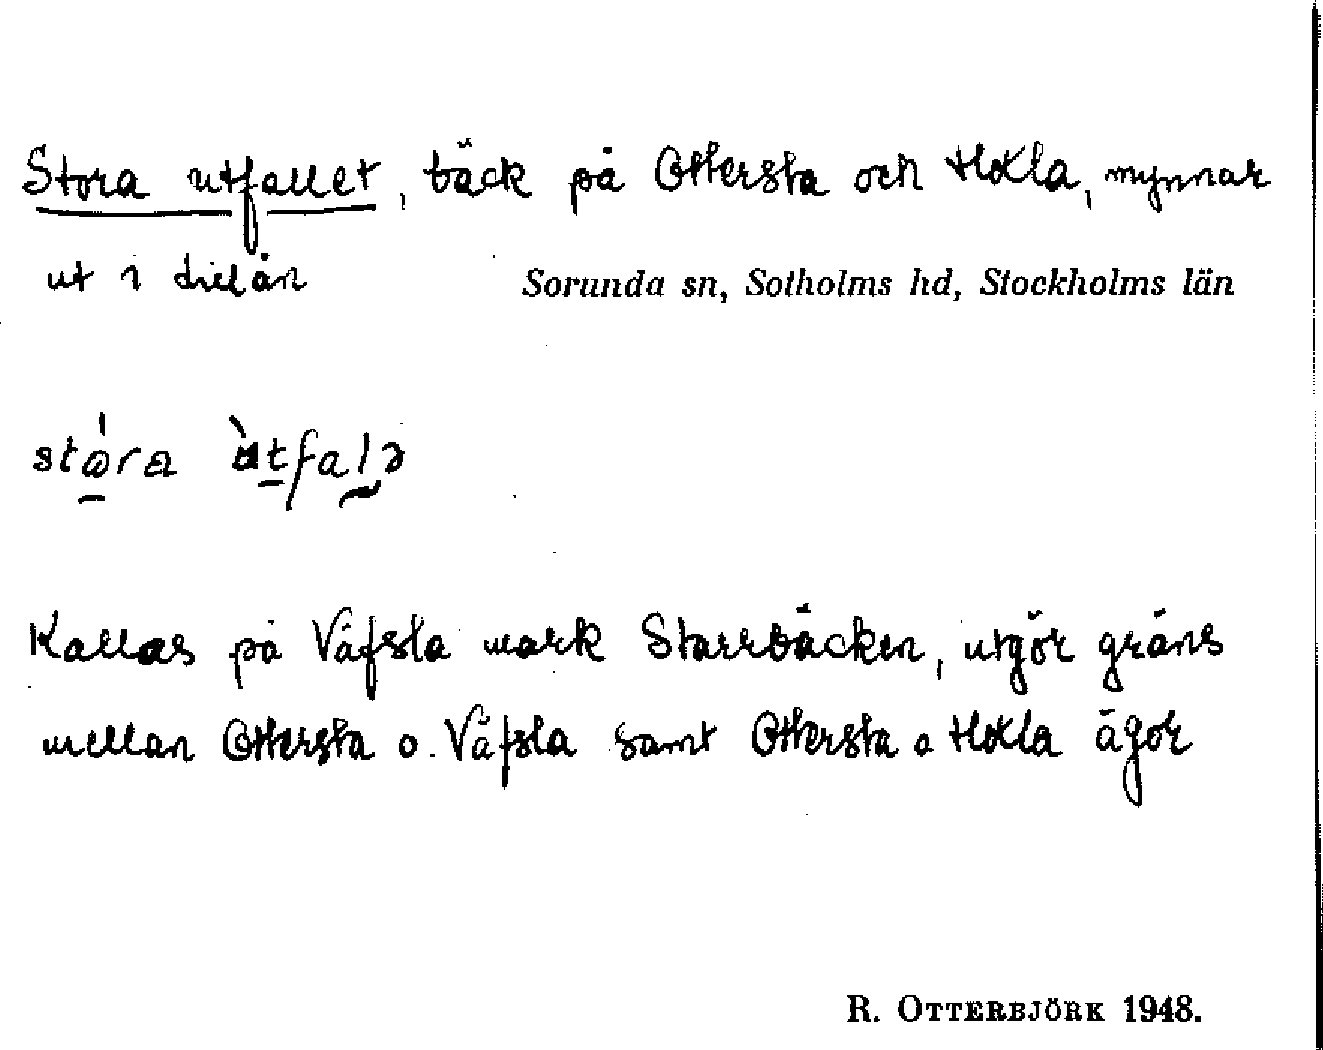 Stora utfallet, bäck på Ottersta och Hoxla, mynnar
ut i
Sorunda sn, Sotholms hd, Stockholms län
Kallas på Väfsla mark Starrbäcken, utgör gräns
mellan Ottersta o. Väfsla samt Ottersta o Hoxla ägor
R. OTTERBJÖRK 1948.